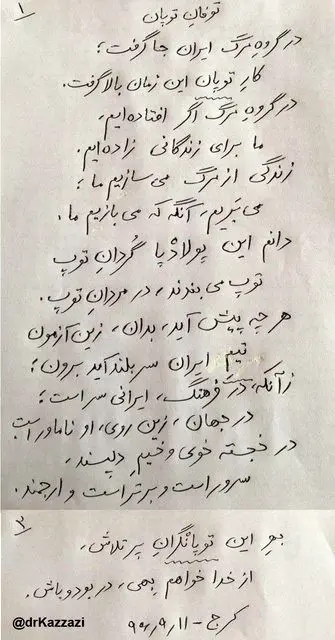 ۱
توفانِ توپان
در گروهِ مرگ ایران جا گرفت؛
کارِ توپان این زمان بالا گرفت.
در گروهِ مرگ اگر افتاده‌ایم،
ما برای زندگانی زاده‌ایم.
زندگی از مرگ می‌سازیم ما؛
می‌بَریم، آنگه که می‌بازیم ما.
دانم این پولادْپا گُردانِ توپ
توپ می‌بندند، در مردانِ توپ.
هر چه پیش آید، بدان، زین آزمون
تیمِ ایران سربلند آید برون؛
زآنکه، در فرهنگ، ایرانی سر است؛
در جهان، زین روی، او نام‌آور است
در خجسته خوی و خیمِ دلپسند،
سرور است و برتر است و ارجمند.
۳
بهرِ این توپانگرانِ پر تلاش،
از خدا خواهم بهی، در بود و باش.
کرج - ۹۰/۹/۱۱
@drKazzazi